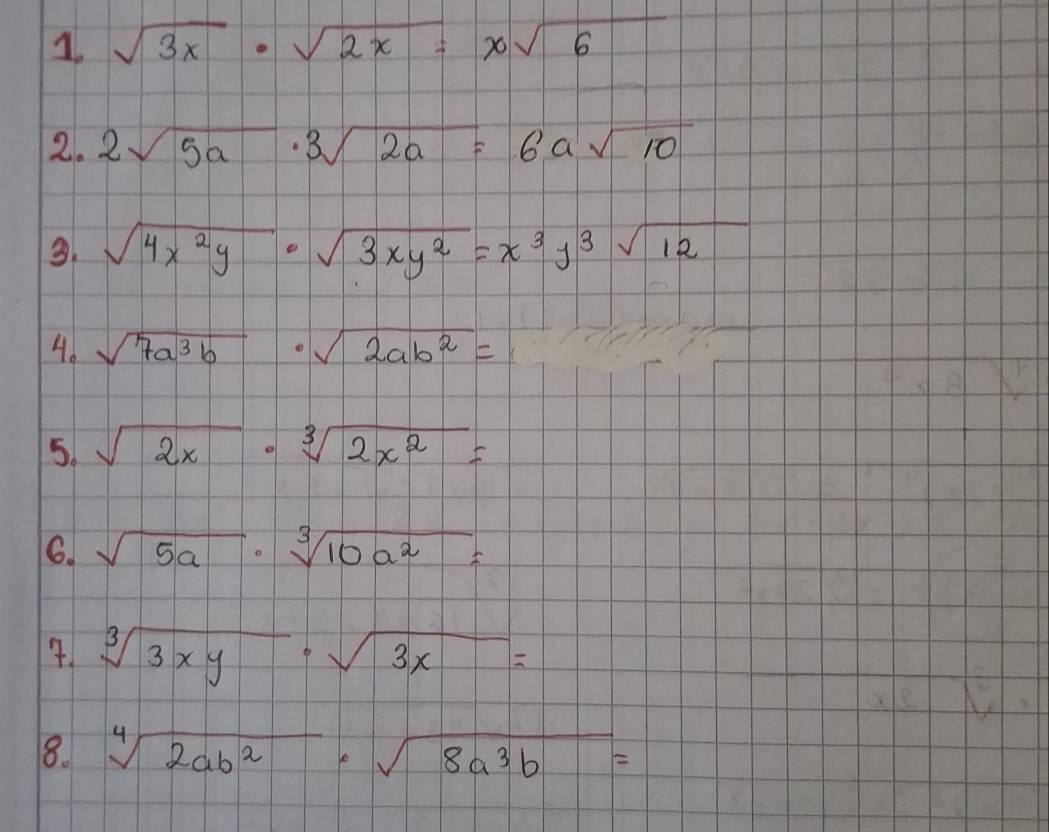 1. √3x · √2x = x√6
2. 2√5a · 3√2a = 6a√10
3. √4x²y · √3xy² = x³y³ √12
4. √7a³b · √2ab² =
5. √2x · ∛2x² =
6. √5a · ∛10a² =
7. ∛3xy · √3x =
8. ∜2ab² · √8a³b =